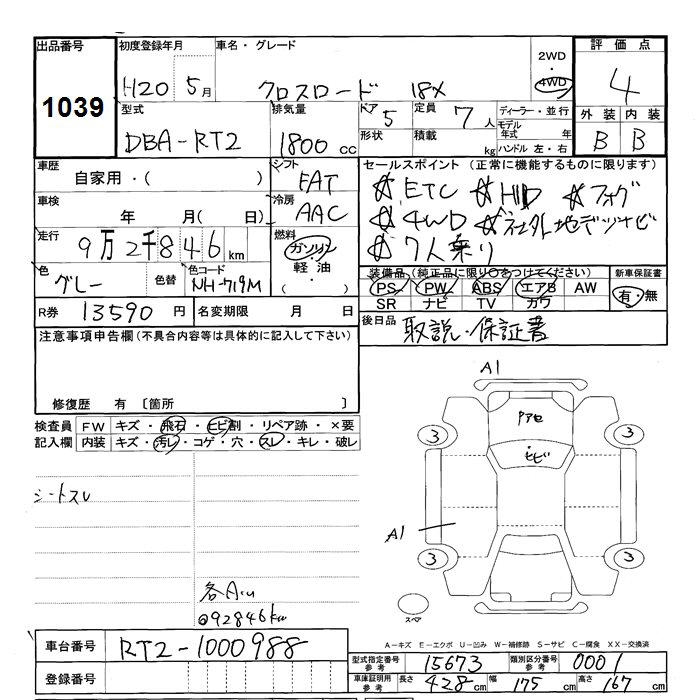 出品番号 初度登録年月 車名・グレード 評価点
1039
H20 5月 クロスロード 18X 2WD 4WD 4
型式 排気量 ドア 5 定員 7人 ディーラー・並行 外装 内装
モデル年式 年
DBA-RT2 1800cc 形状 積載 kg ハンドル 左・右 B B
車歴 シフト セールスポイント (正常に機能するものに限ります)
自家用・( ) FAT ☆ETC ☆HID ☆フォグ
車検 冷房 ☆4WD ☆社外地デジナビ
年 月( 日) AAC ☆7人乗り
走行 燃料
9万2千846km ガソリン
軽油・( )
色 色替 色コード 装備品 (純正品に限り○をつけてください) 新車保証書
グレー NH-719M PS PW ABS エアB AW 有・無
SR ナビ TV カワ
R券 13590円 名変期限 月 日 後日品 取説・保証書
注意事項申告欄 (不具合内容等は具体的に記入して下さい)
修復歴 有 〔箇所 〕
検査員 FW キズ・飛石・ヒビ割・リペア跡・×要
記入欄 内装 キズ・汚レ・コゲ・穴・スレ・キレ・破レ
A1
Pアセ
ヒビ
3 3
シートスレ
A1
3 3
各A
@92846km
スペア
A-キズ E-エクボ U-凹み W-補修跡 S-サビ C-腐食 XX-交換済
車台番号 RT2-1000988
登録番号
型式指定番号 参考 15673 類別区分番号 参考 0001
車庫証明用 参考 長さ 428cm 幅 175cm 高さ 167cm